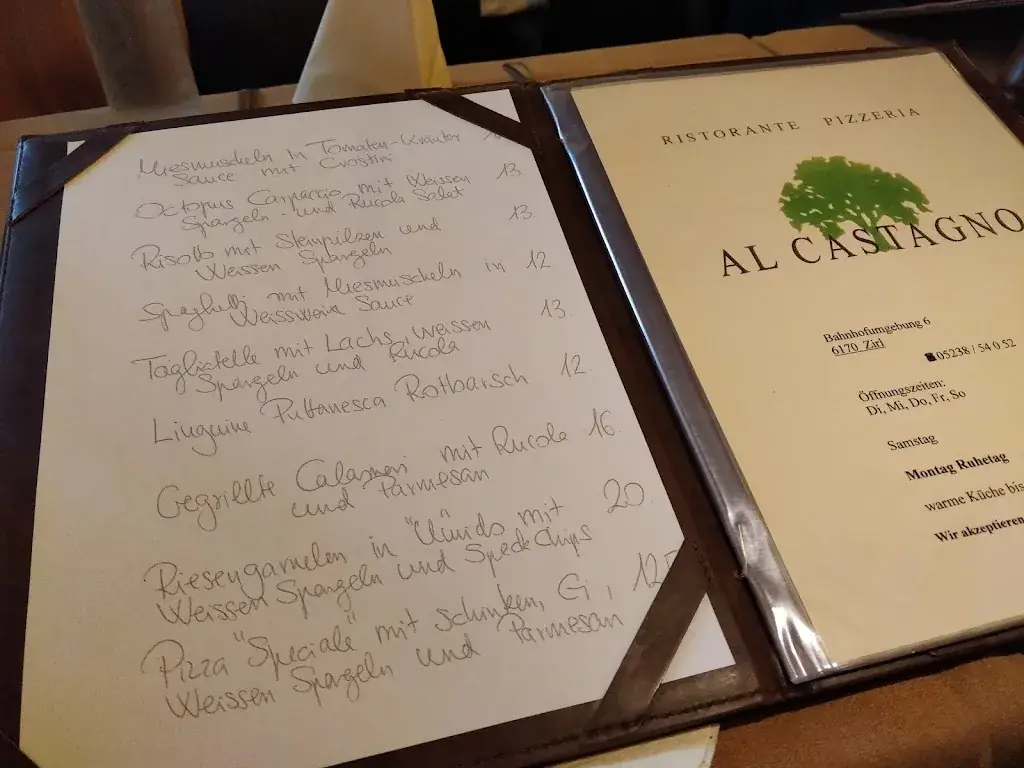 Miesmuscheln in Tomaten-Kräuter
Sauce mit Crostini
Octopus Carpaccio mit Weissen 13.
Spargeln - und Rucola Salat
Risotto mit Steinpilzen und 13.
Weissen Spargeln
Spaghetti mit Miesmuscheln in 12
Weisswein Sauce
Tagliatelle mit Lachs, weissen 13.
Spargeln und Rucola
Linguine Puttanesca Rotbarsch 12.
Gegrillte Calameri mit Rucola 16.
und Parmesan
Riesengarnelen in "Ümido" mit 20.
Weissen Spargeln und Speck Chips
Pizza "Speciale" mit Schinken, Ei, 12
Weissen Spargeln und Parmesan
RISTORANTE PIZZERIA
AL CASTAGNO
Bahnhofumgebung 6
6170 Zirl
05238 / 54 0 52
Öffnungszeiten:
Di, Mi, Do, Fr, So
Samstag
Montag Ruhetag
warme Küche bis
Wir akzeptieren